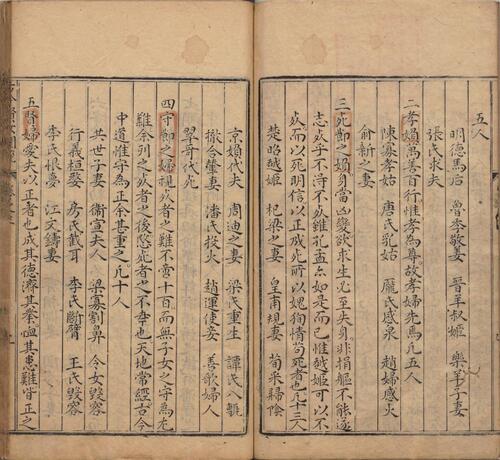 五人
明德馬后 魯季敬姜 晉羊叔姬 樂羊子妻
張氏求夫
二孝婦萬善百行惟孝為尊故孝婦先焉凡五人
陳寡孝姑 唐氏乳姑 龐氏感泉 趙婦感火
俞新之妻
三死節之婦身當凶變欲求生必至失身非捐軀不能遂
志死乎不得不死雖孔孟亦如是而已惟越姬可以不
死而以死明信以正成死所以媿狥情苟死者也凡十三人
楚昭越姬 杞梁之妻 皇甫規妻 荀采歸陰
京娟代夫 周迪之妻 梁氏重生 譚氏
撤合輦妻 潘氏投火 趙運使妾 善歌婦人
翠哥代死
四守節之婦視死者之難不啻十百而無子女之守為尤
難余列之死者之後愍死者之不幸也天地常經古今
中道惟守為正余甚重之凡十人
共世子妻 衛宣夫人 梁寡割鼻 令女毀容
行義桓嫠 房氏截耳 李氏斷臂 王氏毀容
李氏恨夢 江文鑄妻
五賢婦愛夫以正者也成其德濟其業恤其患難皆正之